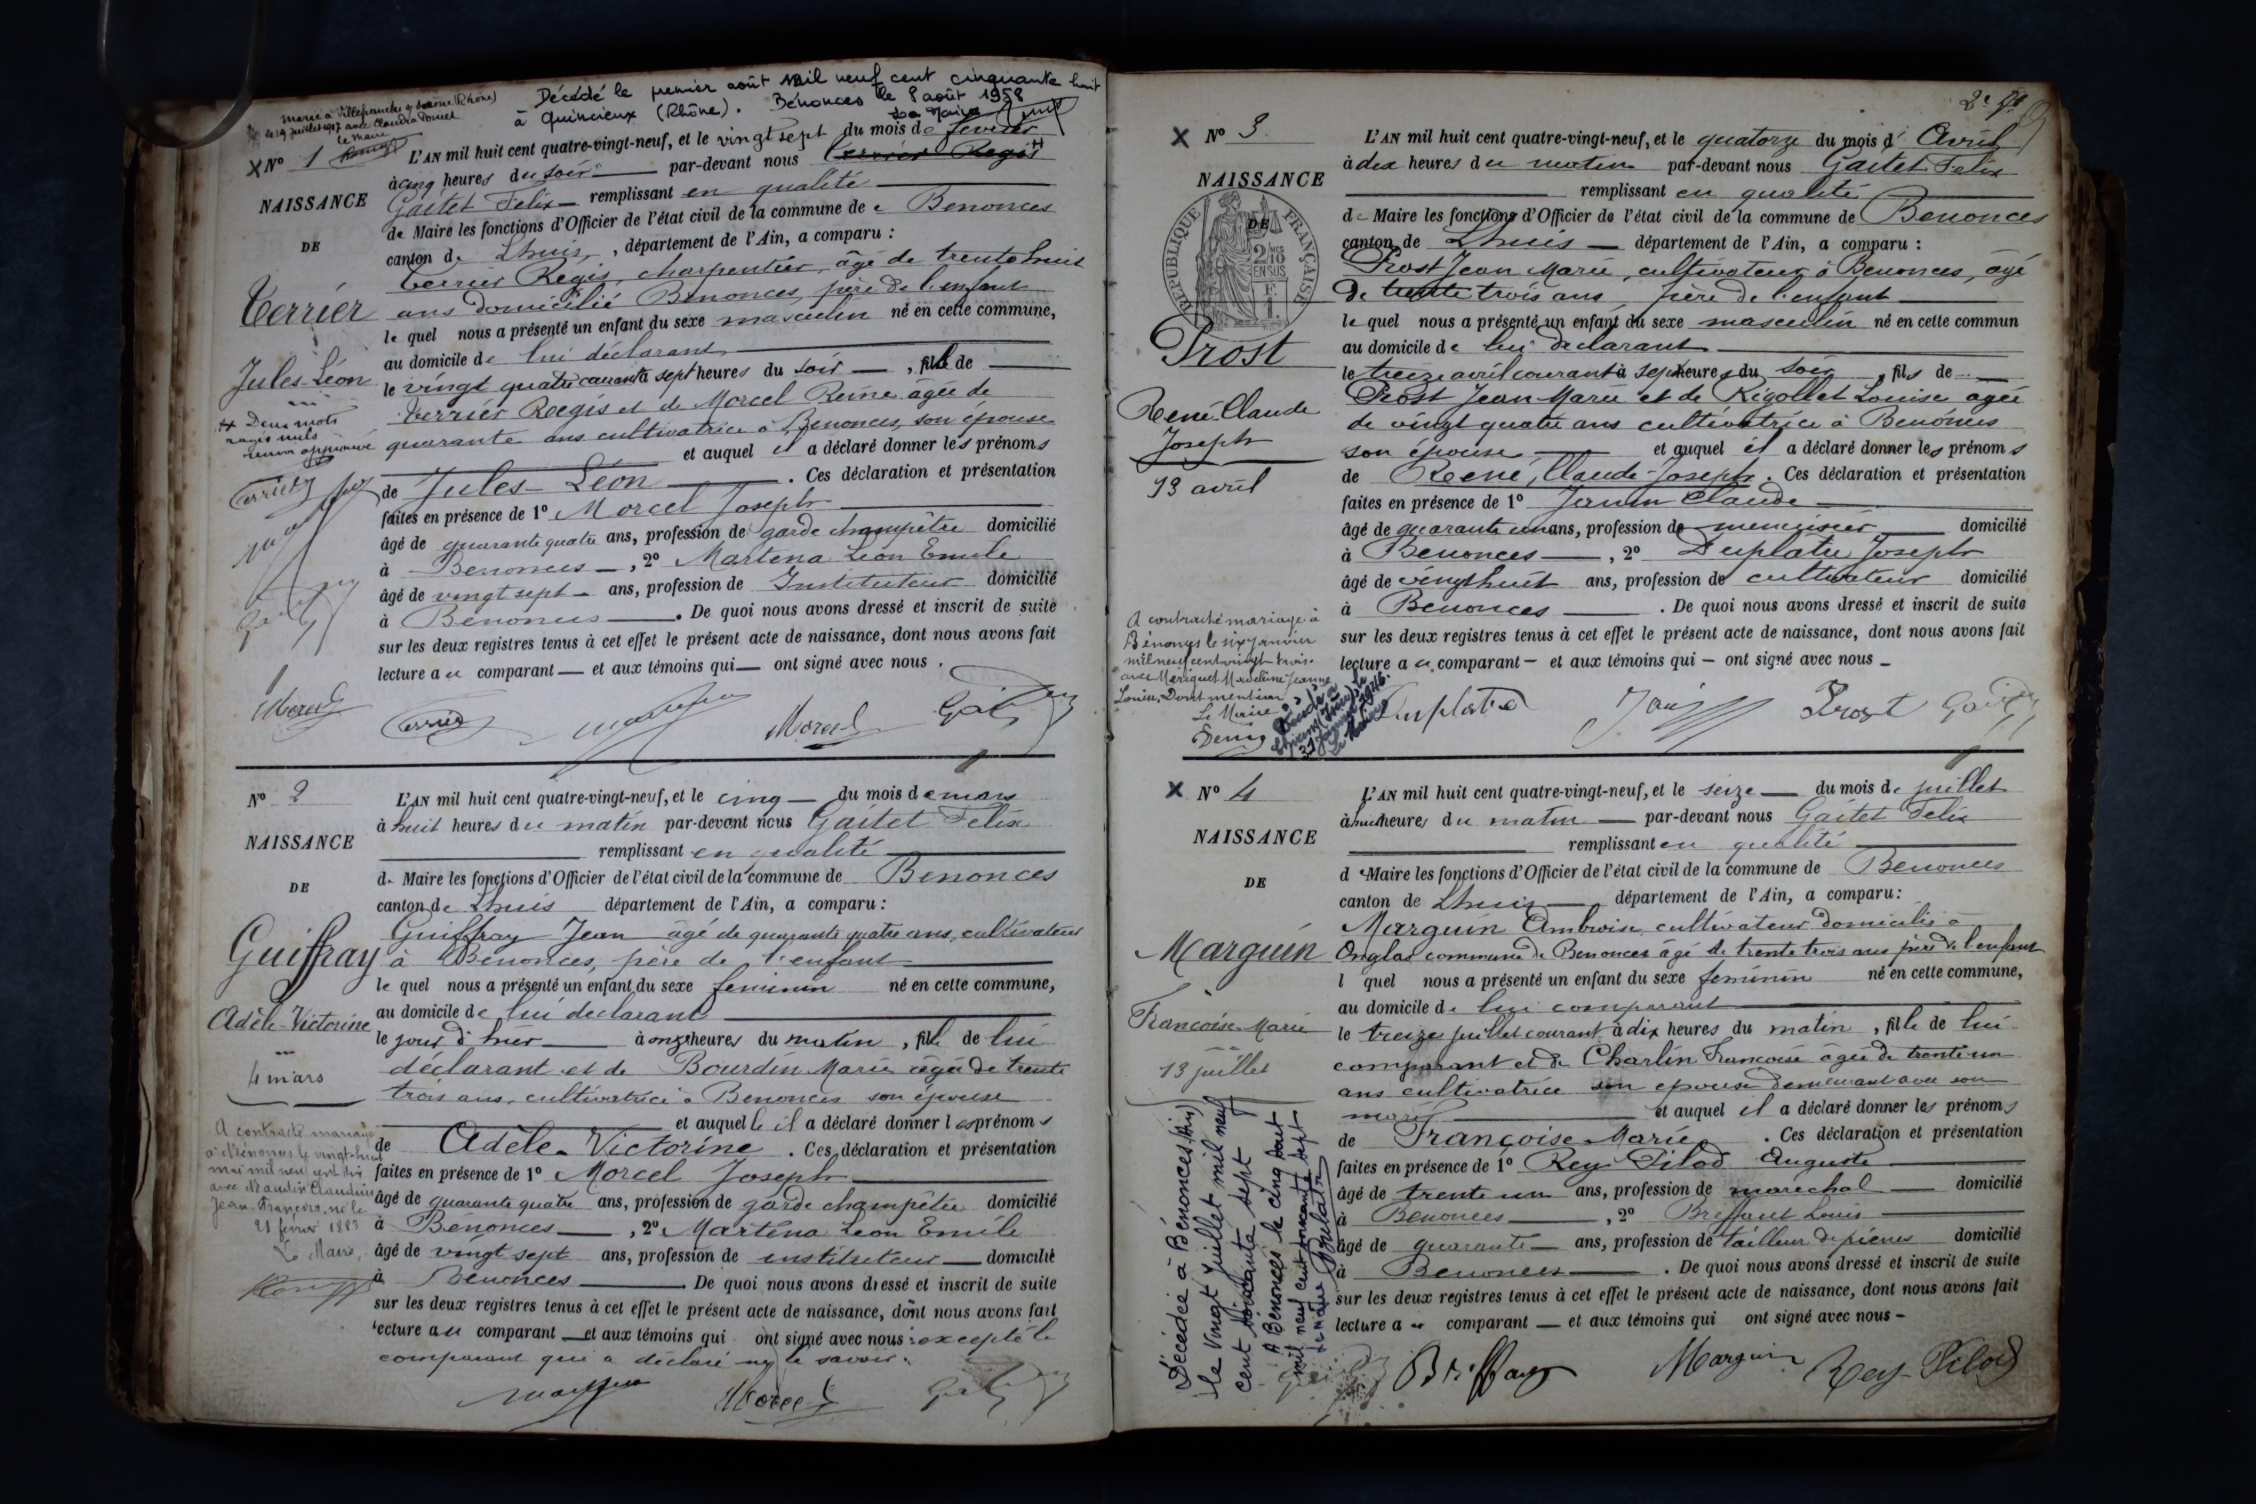 Marié à Villefranche s/ Saône (Rhône)
le 19 juillet 1917 avec Claudia Tonnet
Le Maire
Décédé le premier août mil neuf cent cinquante huit
à Quincieux (Rhône). Bénonces le 8 août 1958
Le Maire
X N° 1
NAISSANCE
DE
Terrier
Jules-Léon
++ Deux mots
rayés nuls
renvoi approuvé
L'AN mil huit cent quatre-vingt-neuf, et le vingt sept du mois de fevrier
à cinq heures du soir par-devant nous Terrier Regis ++
Gaitet Felix remplissant en qualité
de Maire les fonctions d'Officier de l'état civil de la commune de Benonces
canton de Lhuis, département de l'Ain, a comparu :
Terrier Regis, charpentier, âgé de trente huit
ans domicilié Benonces, père de l'enfant
le quel nous a présenté un enfant du sexe masculin né en cette commune,
au domicile de lui déclarant
le vingt quatre courant à sept heures du soir, fils de
Terrier Regis et de Morcel Reine âgée de
quarante ans cultivatrice à Benonces, son épouse
et auquel il a déclaré donner les prénoms
de Jules-Léon. Ces déclaration et présentation
faites en présence de 1° Morcel Joseph
âgé de quarante quatre ans, profession de garde champêtre domicilié
à Benonces, 2° Martena Léon Emile
âgé de vingt sept ans, profession de Instituteur domicilié
à Benonces. De quoi nous avons dressé et inscrit de suite
sur les deux registres tenus à cet effet le présent acte de naissance, dont nous avons fait
lecture au comparant et aux témoins qui ont signé avec nous.
Morcel
Terrier
Morcel
N° 2
NAISSANCE
DE
Guiffray
Adèle-Victorine
4 mars
A contracté mariage
à Bénonces le vingt-huit
mai mil neuf cent dix
avec Claudius
Jean François, né le
21 fevrier 1883
Le Maire,
L'AN mil huit cent quatre-vingt-neuf, et le cinq du mois de mars
à huit heures du matin par-devant nous Gaitet Felix
remplissant en qualité
de Maire les fonctions d'Officier de l'état civil de la commune de Benonces
canton de Lhuis département de l'Ain, a comparu :
Guiffray Jean âgé de quarante quatre ans, cultivateur
à Benonces, père de l'enfant
le quel nous a présenté un enfant du sexe feminin né en cette commune,
au domicile de lui declarant
le jour d'hier à onze heures du matin, fille de lui
déclarant et de Bourdin Marie âgée de trente
trois ans, cultivatrice à Benonces son épouse
et auquel le il a déclaré donner les prénoms
de Adèle-Victorine. Ces déclaration et présentation
faites en présence de 1° Morcel Joseph
âgé de quarante quatre ans, profession de garde champêtre domicilié
à Benonces, 2° Martena Leon Emile
âgé de vingt sept ans, profession de instituteur domicilié
à Benonces. De quoi nous avons dressé et inscrit de suite
sur les deux registres tenus à cet effet le présent acte de naissance, dont nous avons fait
lecture au comparant et aux témoins qui ont signé avec nous excepté le
comparant qui a déclaré ne le savoir.
Morcel
X N° 3
NAISSANCE
DE
RÉPUBLIQUE FRANÇAISE
Prost
René Claude
Joseph
13 avril
A contracté mariage à
Bénonces le six janvier
mil neuf cent vingt-trois
avec Meriguet Madeleine Jeanne
Louise, Dont mention
Le Maire
L'AN mil huit cent quatre-vingt-neuf, et le quatorze du mois d'Avril
à dix heures du matin par-devant nous Gaitet Felix
remplissant en qualité
de Maire les fonctions d'Officier de l'état civil de la commune de Benonces
canton de Lhuis département de l'Ain, a comparu :
Prost Jean Marie, cultivateur à Benonces, âgé
de trente trois ans, père de l'enfant
le quel nous a présenté un enfant du sexe masculin né en cette commun
au domicile de lui declarant
le treize avril courant à sept heures du soir, fils de
Prost Jean Marie et de Rigollet Louise agée
de vingt quatre ans cultivatrice à Benonces
son épouse et auquel il a déclaré donner les prénoms
de René, Claude-Joseph. Ces déclaration et présentation
faites en présence de 1° Janin Claude
âgé de quarante un ans, profession de menuisier domicilié
à Benonces, 2° Duplatre Joseph
âgé de vingt huit ans, profession de cultivateur domicilié
à Benonces. De quoi nous avons dressé et inscrit de suite
sur les deux registres tenus à cet effet le présent acte de naissance, dont nous avons fait
lecture au comparant et aux témoins qui ont signé avec nous
Duplatre
Janin
Prost
X N° 4
NAISSANCE
DE
Marguin
Francoise-Marie
13 juillet
Décédée à Bénonces (Ain)
le vingt juillet mil neuf
cent soixante sept
A Benonces le cinq août
mil neuf cent soixante sept
Le Maire
L'AN mil huit cent quatre-vingt-neuf, et le seize du mois de juillet
à huit heures du matin par-devant nous Gaitet Felix
remplissant en qualité
de Maire les fonctions d'Officier de l'état civil de la commune de Benonces
canton de Lhuis département de l'Ain, a comparu :
Marguin Ambroise, cultivateur domicilié à
Onglas commune de Benonces âgé de trente trois ans père de l'enfant
l quel nous a présenté un enfant du sexe feminin né en cette commune,
au domicile de lui comparant
le treize juillet courant à dix heures du matin, fille de lui
comparant et de Charlin Francoise âgée de trente un
ans cultivatrice son epouse demeurant avec son
mari et auquel il a déclaré donner les prénoms
de Françoise Marie. Ces déclaration et présentation
faites en présence de 1° Rey Pilod Auguste
âgé de trente un ans, profession de maréchal domicilié
à Benonces, 2° Briffaut Louis
âgé de quarante ans, profession de tailleur de pierres domicilié
à Benonces. De quoi nous avons dressé et inscrit de suite
sur les deux registres tenus à cet effet le présent acte de naissance, dont nous avons fait
lecture au comparant et aux témoins qui ont signé avec nous
Marguin
Rey-Pilod